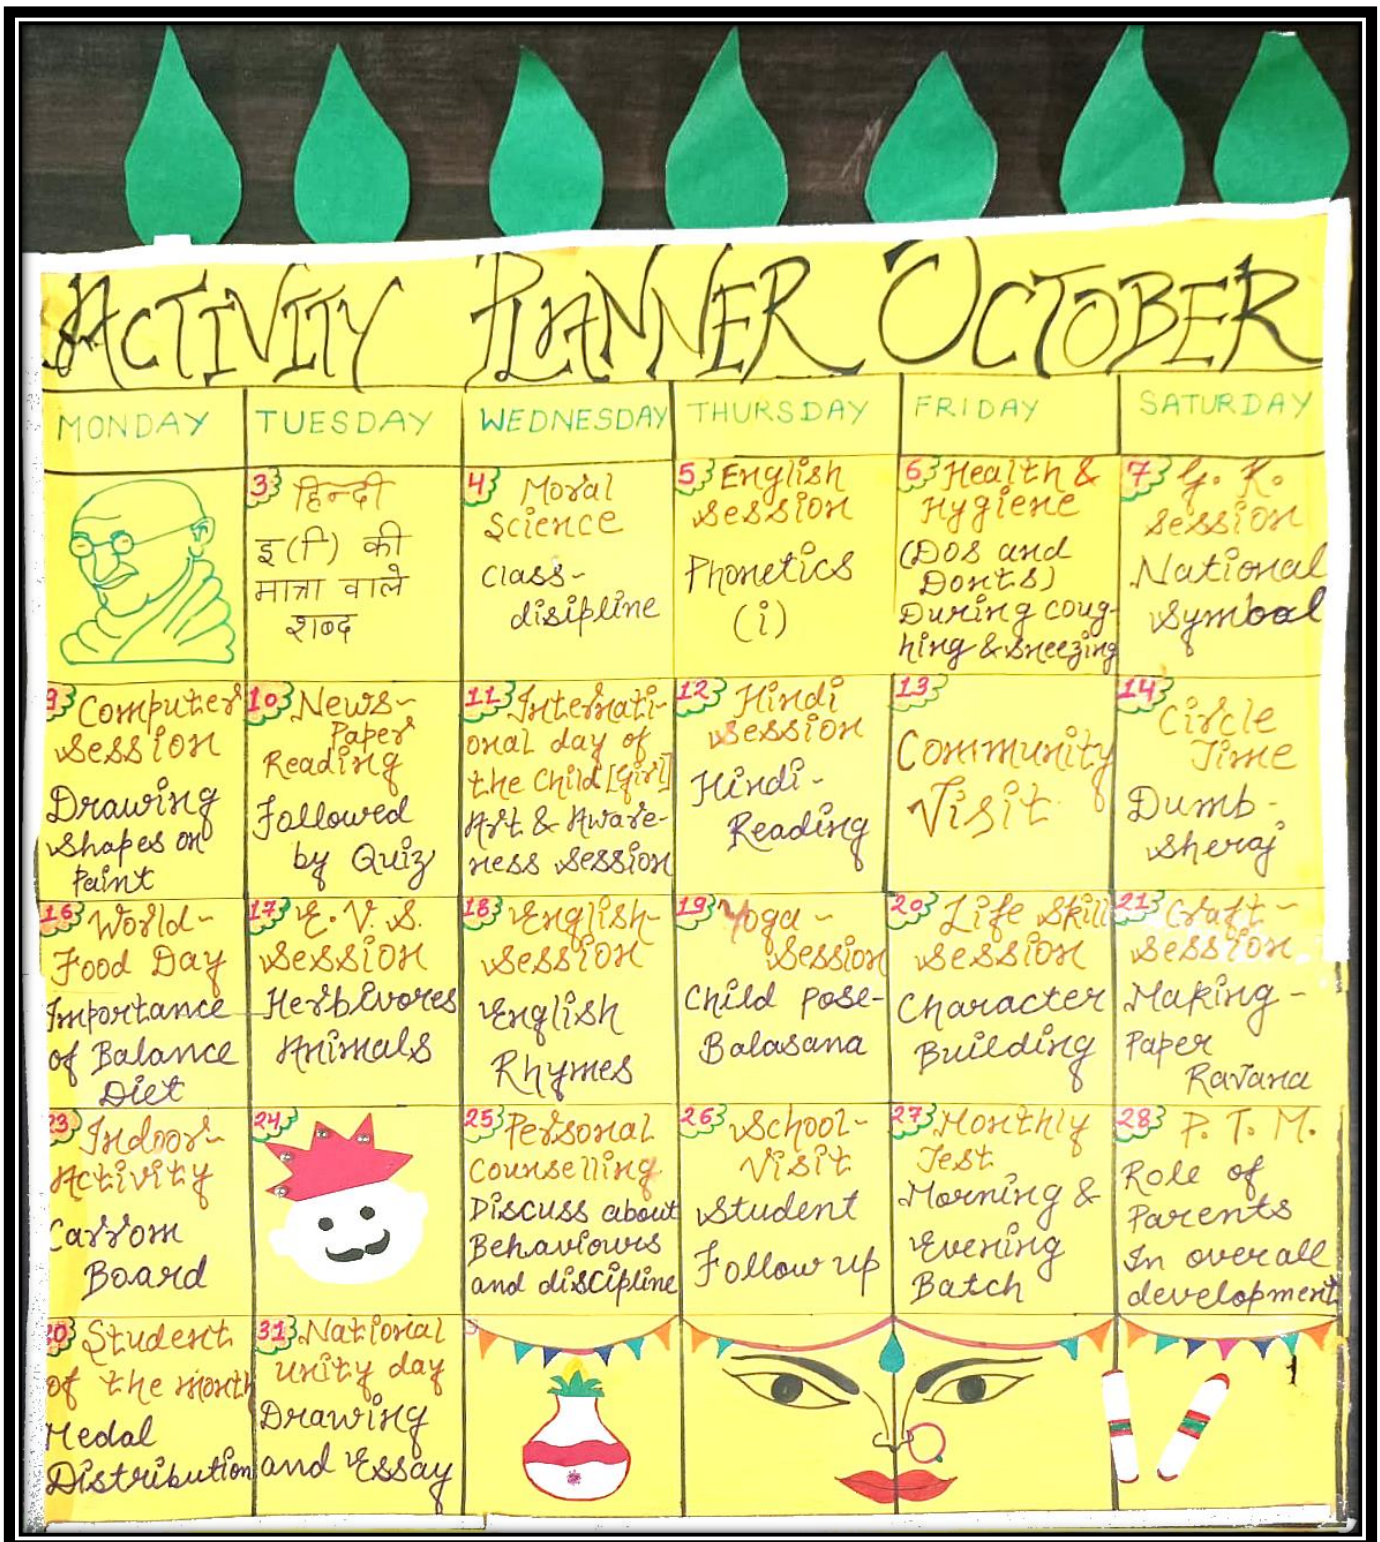 ACTIVITY PLANNER OCTOBER
MONDAY TUESDAY WEDNESDAY THURSDAY FRIDAY SATURDAY
3 हिन्दी
इ (ि) की
मात्रा वाले
शब्द
4 Moral
Science
Class-
disipline
5 English
Session
Phonetics
(i)
6 Health &
Hygiene
(Dos and
Donts)
During coug-
hing & sneezing
7 G. K.
Session
National
Symbol
9 Computer
Session
Drawing
Shapes on
Paint
10 News-
Paper
Reading
Followed
by Quiz
11 Internati-
onal day of
the Child [Girl]
Art & Aware-
ness Session
12 Hindi
Session
Hindi-
Reading
13
Community
Visit
14
Circle
Time
Dumb-
Sheraj
16 World-
Food Day
Importance
of Balance
Diet
17 E. V. S.
Session
Herbivores
Animals
18 English-
Session
English
Rhymes
19 Yoga-
Session
Child Pose-
Balasana
20 Life Skill
Session
Character
Building
21 Craft-
Session
Making-
Paper
Ravana
23 Indoor-
Activity
Carrom
Board
24
25 Personal
Counselling
Discuss about
Behaviours
and discipline
26 School-
Visit
Student
Follow up
27 Monthly
Test
Morning &
Evening
Batch
28 P. T. M.
Role of
Parents
In overall
development
30 Student
of the month
Medal
Distribution
31 National
unity day
Drawing
and Essay